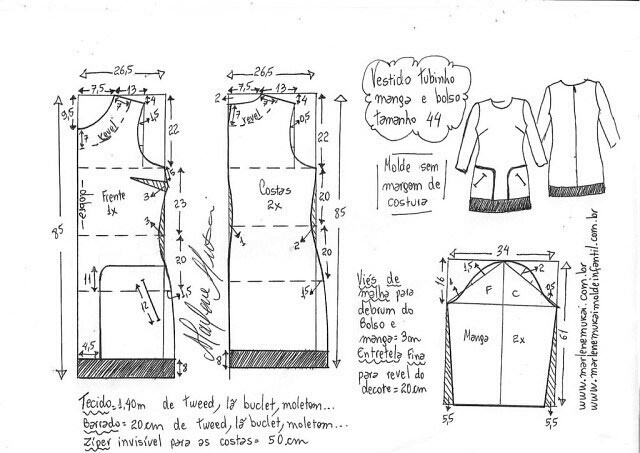 26,5
7,5
13
9,5
7
7
revel
4
1,5
22
1,5
3
dobra
Frente
1x
23
3
85
20
11
12
1,5
4,5
8
26,5
7,5
13
2
4
7
revel
0,5
22
Costas
2x
20
2
1
85
20
1,5
8
Marlene Mukai
Vestido tubinho
manga e bolso
tamanho 44
Molde sem
margem de
costura
34
1,5
2
16
F
C
0,5
Manga
2x
61
5,5
5,5
Viés de
malha para
debrum do
Bolso e
manga = 3cm
Entretela Fina
para revel do
decote = 20cm
www.marlenemukai.com.br
www.marlenemukaimoldeinfantil.com.br
Tecido = 1,40m de tweed, lã buclet, moletom...
Barrado = 20cm de tweed, lã buclet, moletom...
Zíper invisível para as costas = 50cm